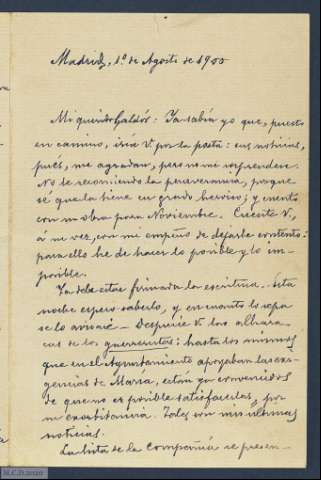 Madrid, 1º de Agosto de 1900
Mi querido Galdós: Ya sabía yo que, puesto
en camino, iría V. por la posta: sus noticias,
pués, me agradan, pero no me sorprenden.
No le recomiendo la perseverancia, porque
sé que la tiene en grado heróico; y cuento
con su obra para Noviembre. Cuente V,
á su vez, con mi empeño de dejarle contento:
para ello he de hacer lo posible y lo im-
posible.
Ya debe estar firmada la escritura. Esta
noche espero saberlo, y en cuanto lo sepa
se lo aviso. — Desprecie V. las alhara-
cas de los guerreristas: hasta los mismos
que en el Ayuntamiento apoyaban las exi-
gencias de María, están ya convencidos
de que no es posible satisfacerlas, por
su exorbitancia. Tales son mis últimas
noticias.
La lista de la Compañía se presen-